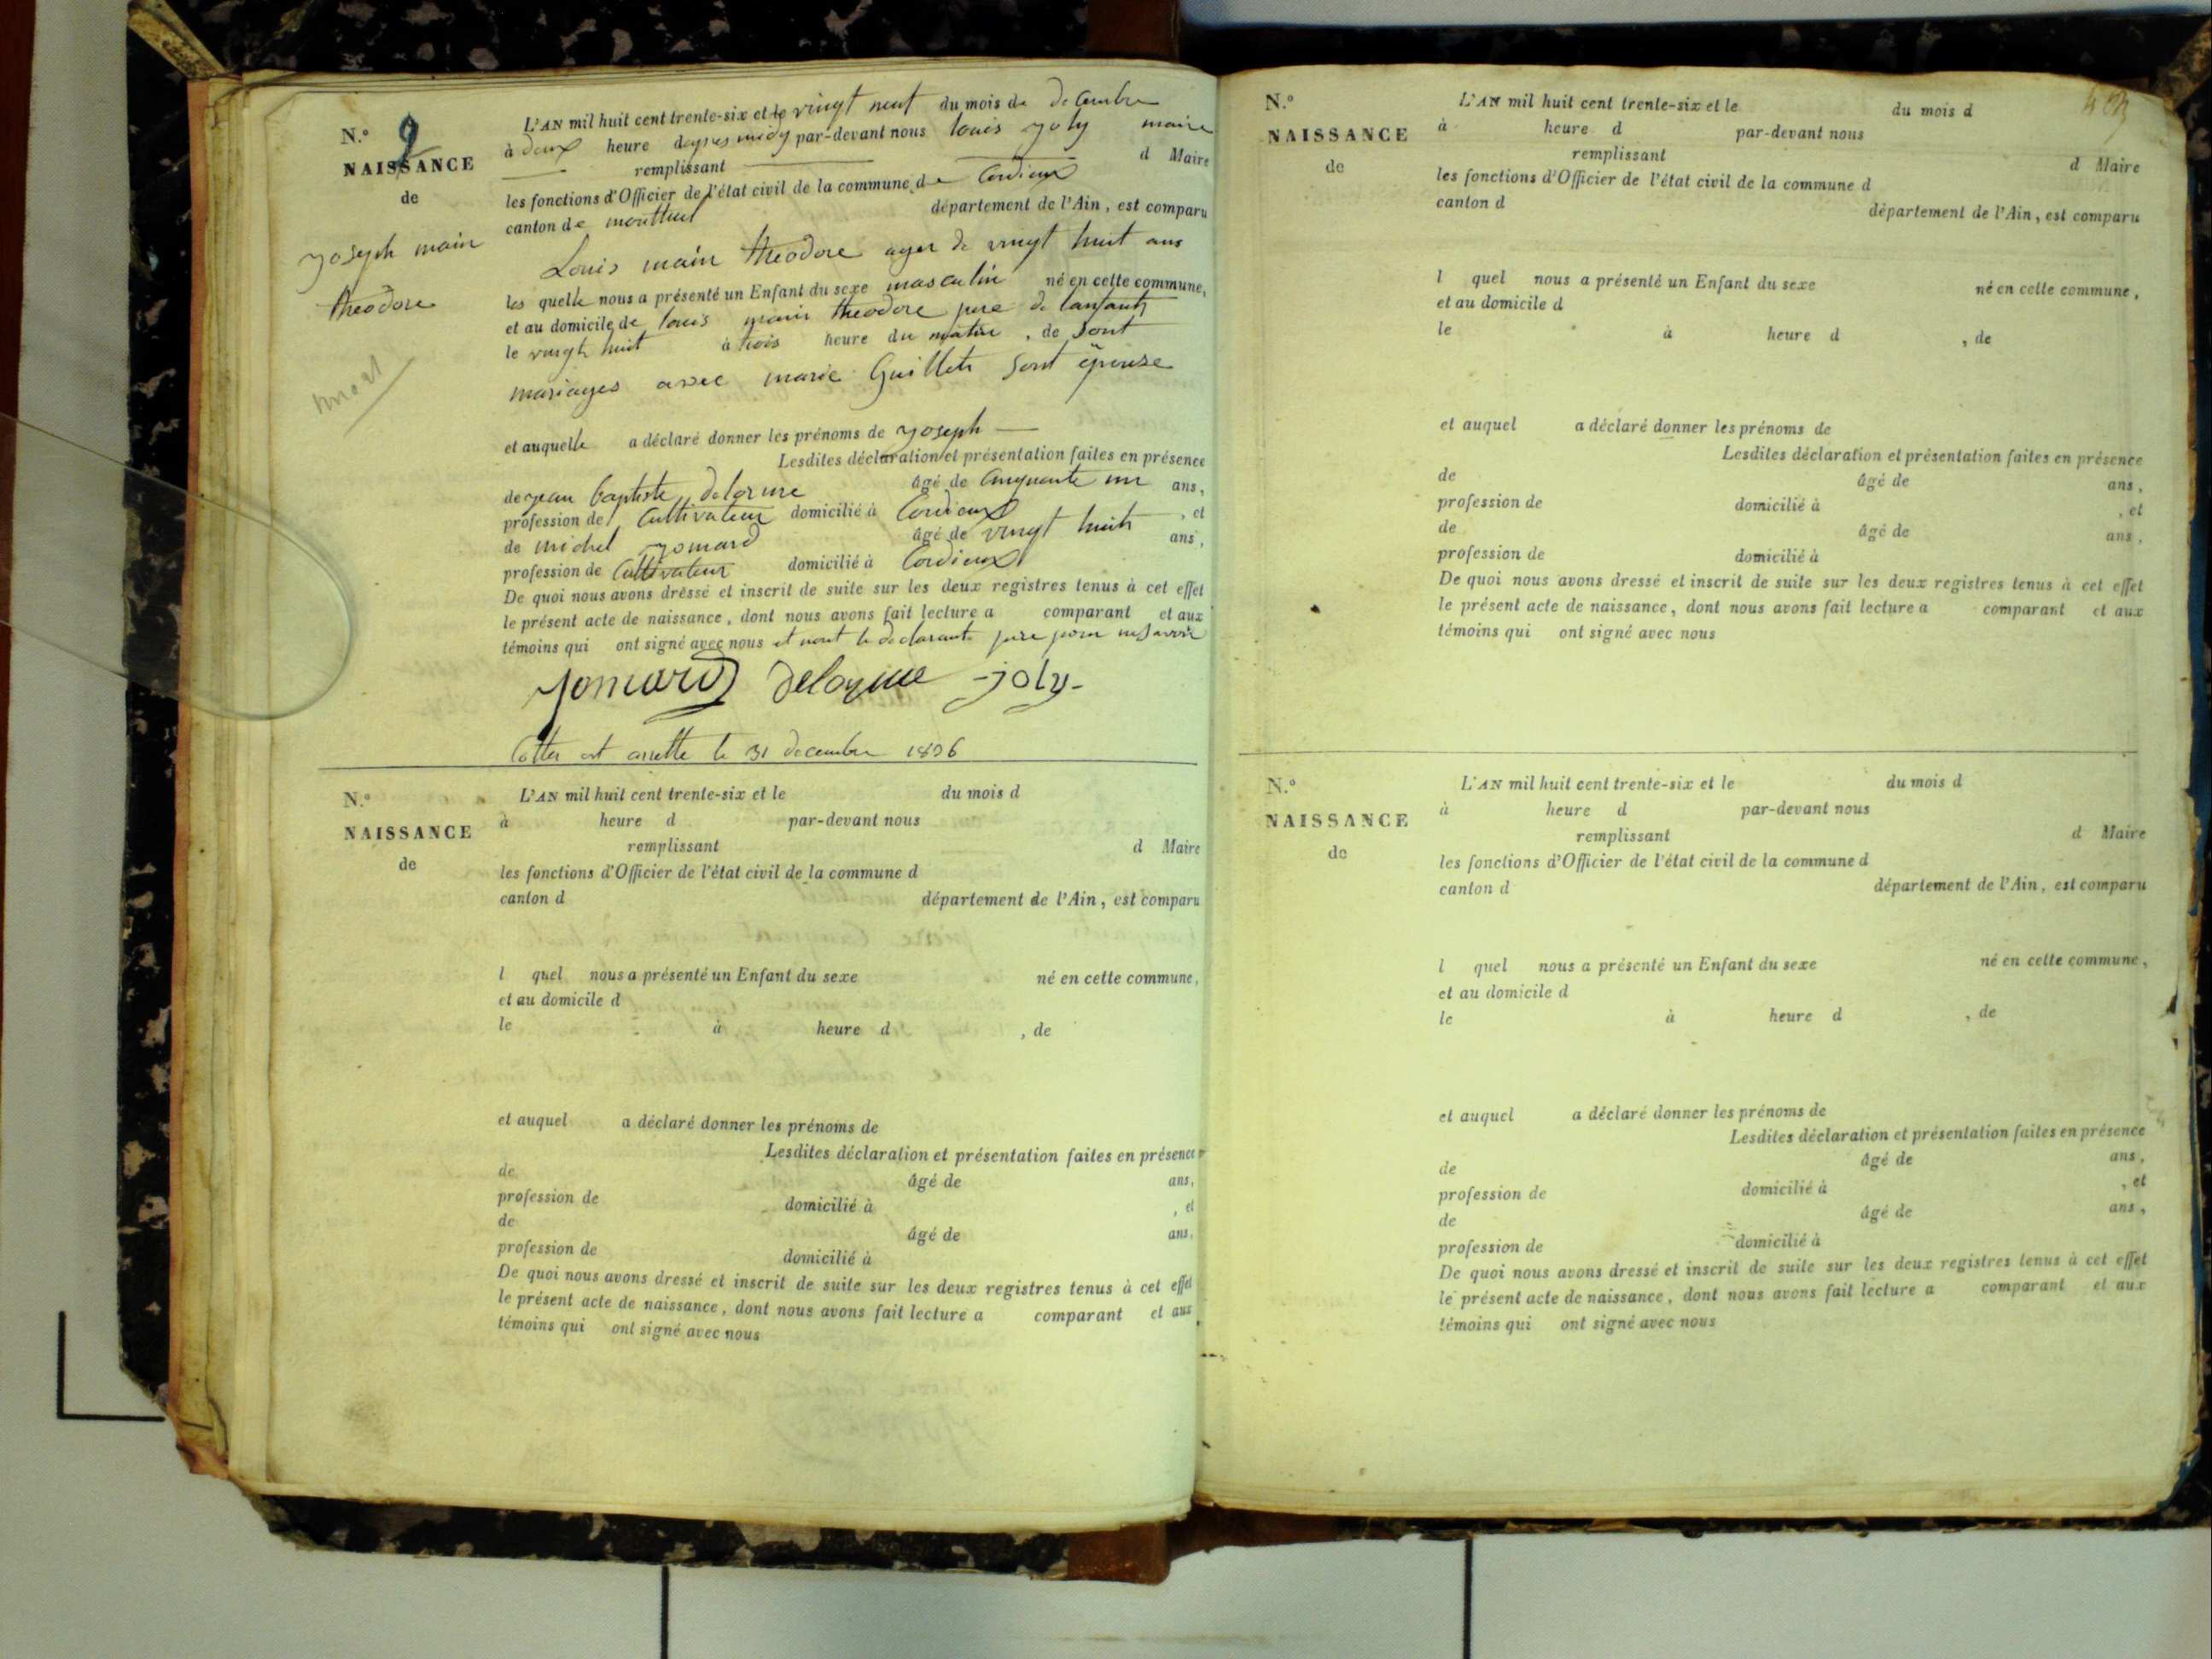 N.° 9
NAISSANCE
de
joseph main
theodore
mort
L'AN mil huit cent trente-six et le vingt neuf du mois de decembre
à deux heure depres midy par-devant nous louis joly maire
remplissant d Maire
les fonctions d'Officier de l'état civil de la commune de Cordieux
canton de montluel département de l'Ain, est comparu
Louis main theodore ager de vingt huit ans
les quelle nous a présenté un Enfant du sexe masculin né en cette commune,
et au domicile de louis main theodore pere de lanfants
le vingt huit à trois heure du matin, de sont
mariages avec marie Guillets sont épouse
et auquelle a déclaré donner les prénoms de joseph
Lesdites déclaration et présentation faites en présence
de jean baptiste delorme âgé de cinquante un ans,
profession de Cultivateur domicilié à Cordieux, et
de michel jomard âgé de vingt huit ans,
profession de Cultivateur domicilié à Cordieux
De quoi nous avons dressé et inscrit de suite sur les deux registres tenus à cet effet
le présent acte de naissance, dont nous avons fait lecture a comparant et aux
témoins qui ont signé avec nous et nont le declarant pere pour ne savoir
jomard delorme -joly-
arrette le 31 decembre 1836
N.°
NAISSANCE
de
L'AN mil huit cent trente-six et le du mois d
à heure d par-devant nous
remplissant d Maire
les fonctions d'Officier de l'état civil de la commune d
canton d département de l'Ain, est comparu
l quel nous a présenté un Enfant du sexe né en cette commune,
et au domicile d
le à heure d , de
et auquel a déclaré donner les prénoms de
Lesdites déclaration et présentation faites en présence
de âgé de ans,
profession de domicilié à , et
de âgé de ans,
profession de domicilié à
De quoi nous avons dressé et inscrit de suite sur les deux registres tenus à cet effet
le présent acte de naissance, dont nous avons fait lecture a comparant et aux
témoins qui ont signé avec nous
N.°
NAISSANCE
de
L'AN mil huit cent trente-six et le du mois d
à heure d par-devant nous
remplissant d Maire
les fonctions d'Officier de l'état civil de la commune d
canton d département de l'Ain, est comparu
l quel nous a présenté un Enfant du sexe né en cette commune,
et au domicile d
le à heure d , de
et auquel a déclaré donner les prénoms de
Lesdites déclaration et présentation faites en présence
de âgé de ans,
profession de domicilié à , et
de âgé de ans,
profession de domicilié à
De quoi nous avons dressé et inscrit de suite sur les deux registres tenus à cet effet
le présent acte de naissance, dont nous avons fait lecture a comparant et aux
témoins qui ont signé avec nous
N.°
NAISSANCE
de
L'AN mil huit cent trente-six et le du mois d
à heure d par-devant nous
remplissant d Maire
les fonctions d'Officier de l'état civil de la commune d
canton d département de l'Ain, est comparu
l quel nous a présenté un Enfant du sexe né en cette commune,
et au domicile d
le à heure d , de
et auquel a déclaré donner les prénoms de
Lesdites déclaration et présentation faites en présence
de âgé de ans,
profession de domicilié à , et
de âgé de ans,
profession de domicilié à
De quoi nous avons dressé et inscrit de suite sur les deux registres tenus à cet effet
le présent acte de naissance, dont nous avons fait lecture a comparant et aux
témoins qui ont signé avec nous